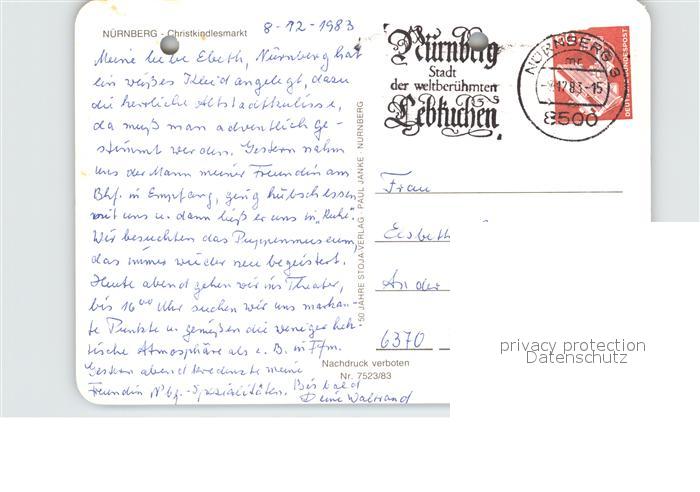 NÜRNBERG - Christkindlesmarkt
8-12-1983
Meine liebe Elsbeth, Nürnberg hat
ein weißes Kleid angelegt, dazu
die herrliche Altstadtkulisse,
da muß man adventlich ge-
stimmt werden. Gestern nahm
uns der Mann meiner Freundin am
Bhf. in Empfang, ging hübsch essen
mit uns u. dann ließ er uns in "Ruhe".
Wir besuchten das Puppenmuseum,
das immer wieder neu begeistert.
Heute abend gehen wir ins Theater,
bis 16⁰⁰ Uhr suchen wir uns markan-
te Punkte u. genießen die weniger hek-
tische Atmosphäre als z. B. in Ffm.
Gestern abend kredenzte meine
Freundin Nbg.-Spezialitäten. Bis bald
Deine Waltraud
50 JAHRE STOJA-VERLAG · PAUL JANKE · NÜRNBERG
Nachdruck verboten
Nr. 7523/83
Nürnberg
Stadt
der weltberühmten
Lebkuchen
NÜRNBERG 3
12.83-15
8500
DEUTSCHE BUNDESPOST
Frau
Elsbeth
An der
6370
privacy protection
Datenschutz